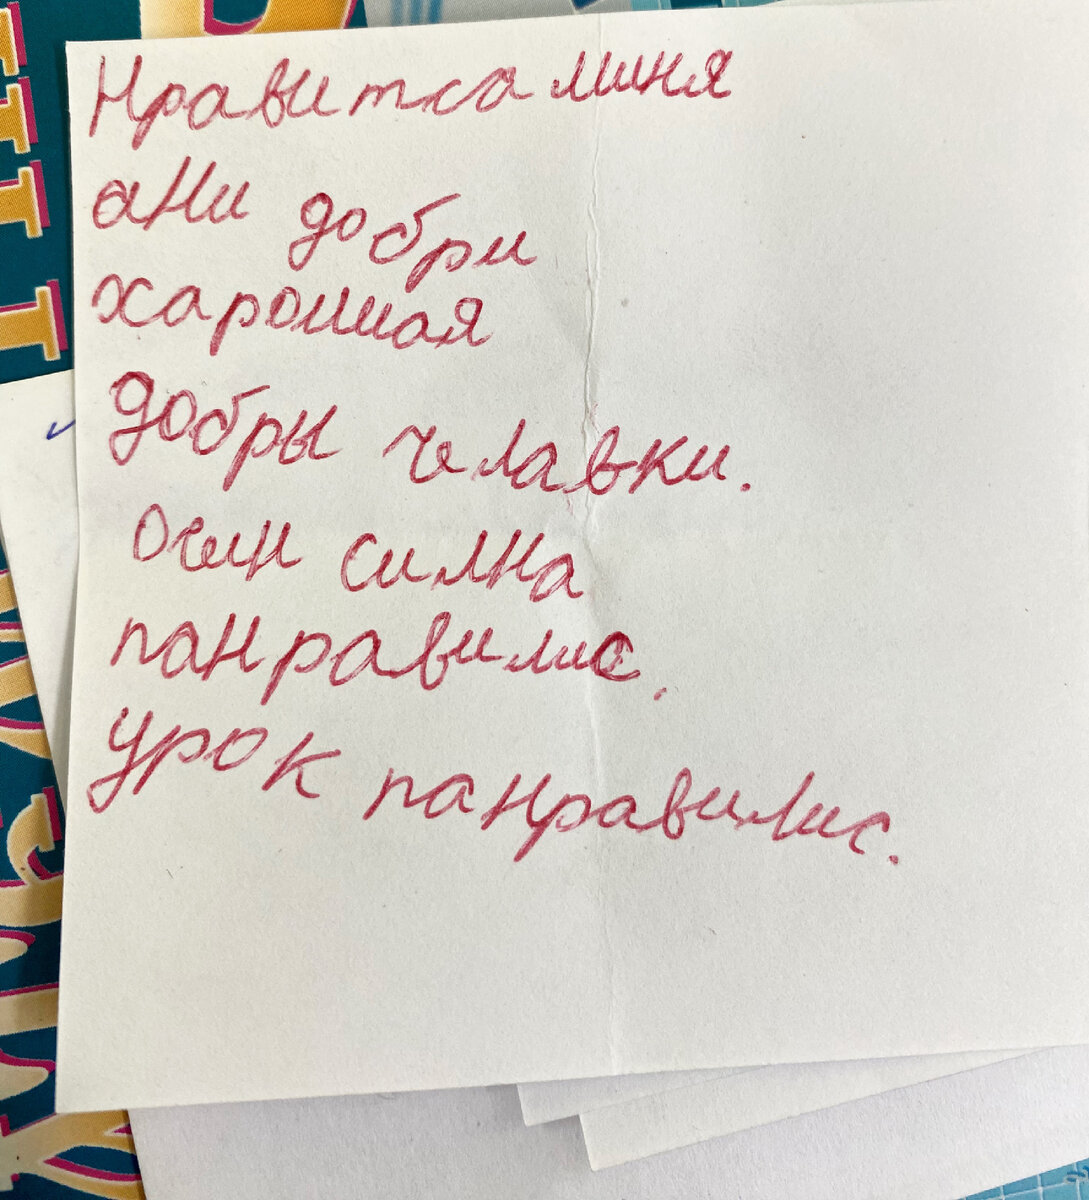 Нравитса миня
ани добри
харошая
добры челавки.
очин силна
панравилис.
урок панравилис.